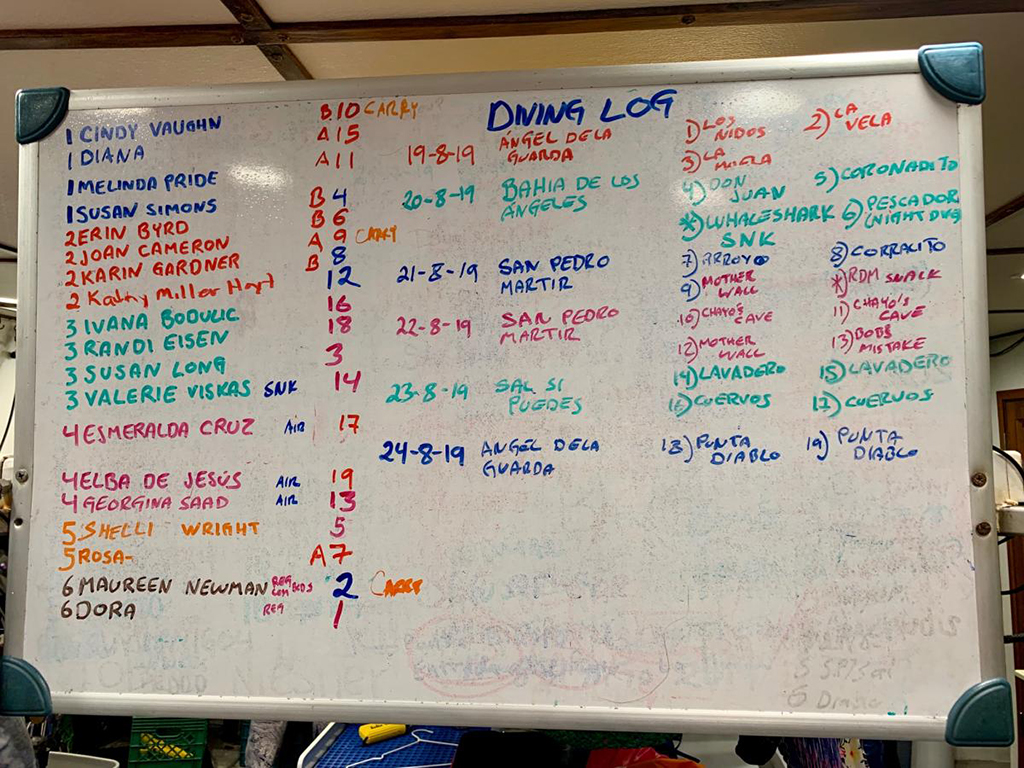 DIVING LOG
1 CINDY VAUGHN B10 CARRY
1 DIANA A15
1 MELINDA PRIDE A11
1 SUSAN SIMONS B 4
2 ERIN BYRD B 6
2 JOAN CAMERON A 9 CARRY
2 KARIN GARDNER B 8
2 Kathy Miller Hart 12
3 IVANA BODULIC 16
3 RANDI EISEN 18
3 SUSAN LONG 3
3 VALERIE VISKAS SNK 14
4 ESMERALDA CRUZ AIR 17
4 ELBA DE JESÚS AIR 19
4 GEORGINA SAAD AIR 13
5 SHELLI WRIGHT 5
5 ROSA- A7
6 MAUREEN NEWMAN REG BCDS 2 CARRY
6 DORA REG 1
19-8-19 ÁNGEL DE LA
GUARDA
1) LOS
NIDOS
2) LA
VELA
3) LA
20-8-19 BAHIA DE LOS
ÁNGELES
4) DON
JUAN
5) CORONADITO
*) WHALESHARK
SNK
6) PESCADOR
(NIGHT DVG)
21-8-19 SAN PEDRO
MARTIR
7) ARROYO
8) CORRALITO
9) MOTHER
WALL
*) RDM SNALK
22-8-19 SAN PEDRO
MARTIR
10) CHAYO'S
CAVE
11) CHAYO'S
CAVE
12) MOTHER
WALL
13) BOBS
MISTAKE
23-8-19 SAL SI
PUEDES
14) LAVADERO
15) LAVADERO
16) CUERVOS
17) CUERVOS
24-8-19 ANGEL DE LA
GUARDA
18) PUNTA
DIABLO
19) PUNTA
DIABLO